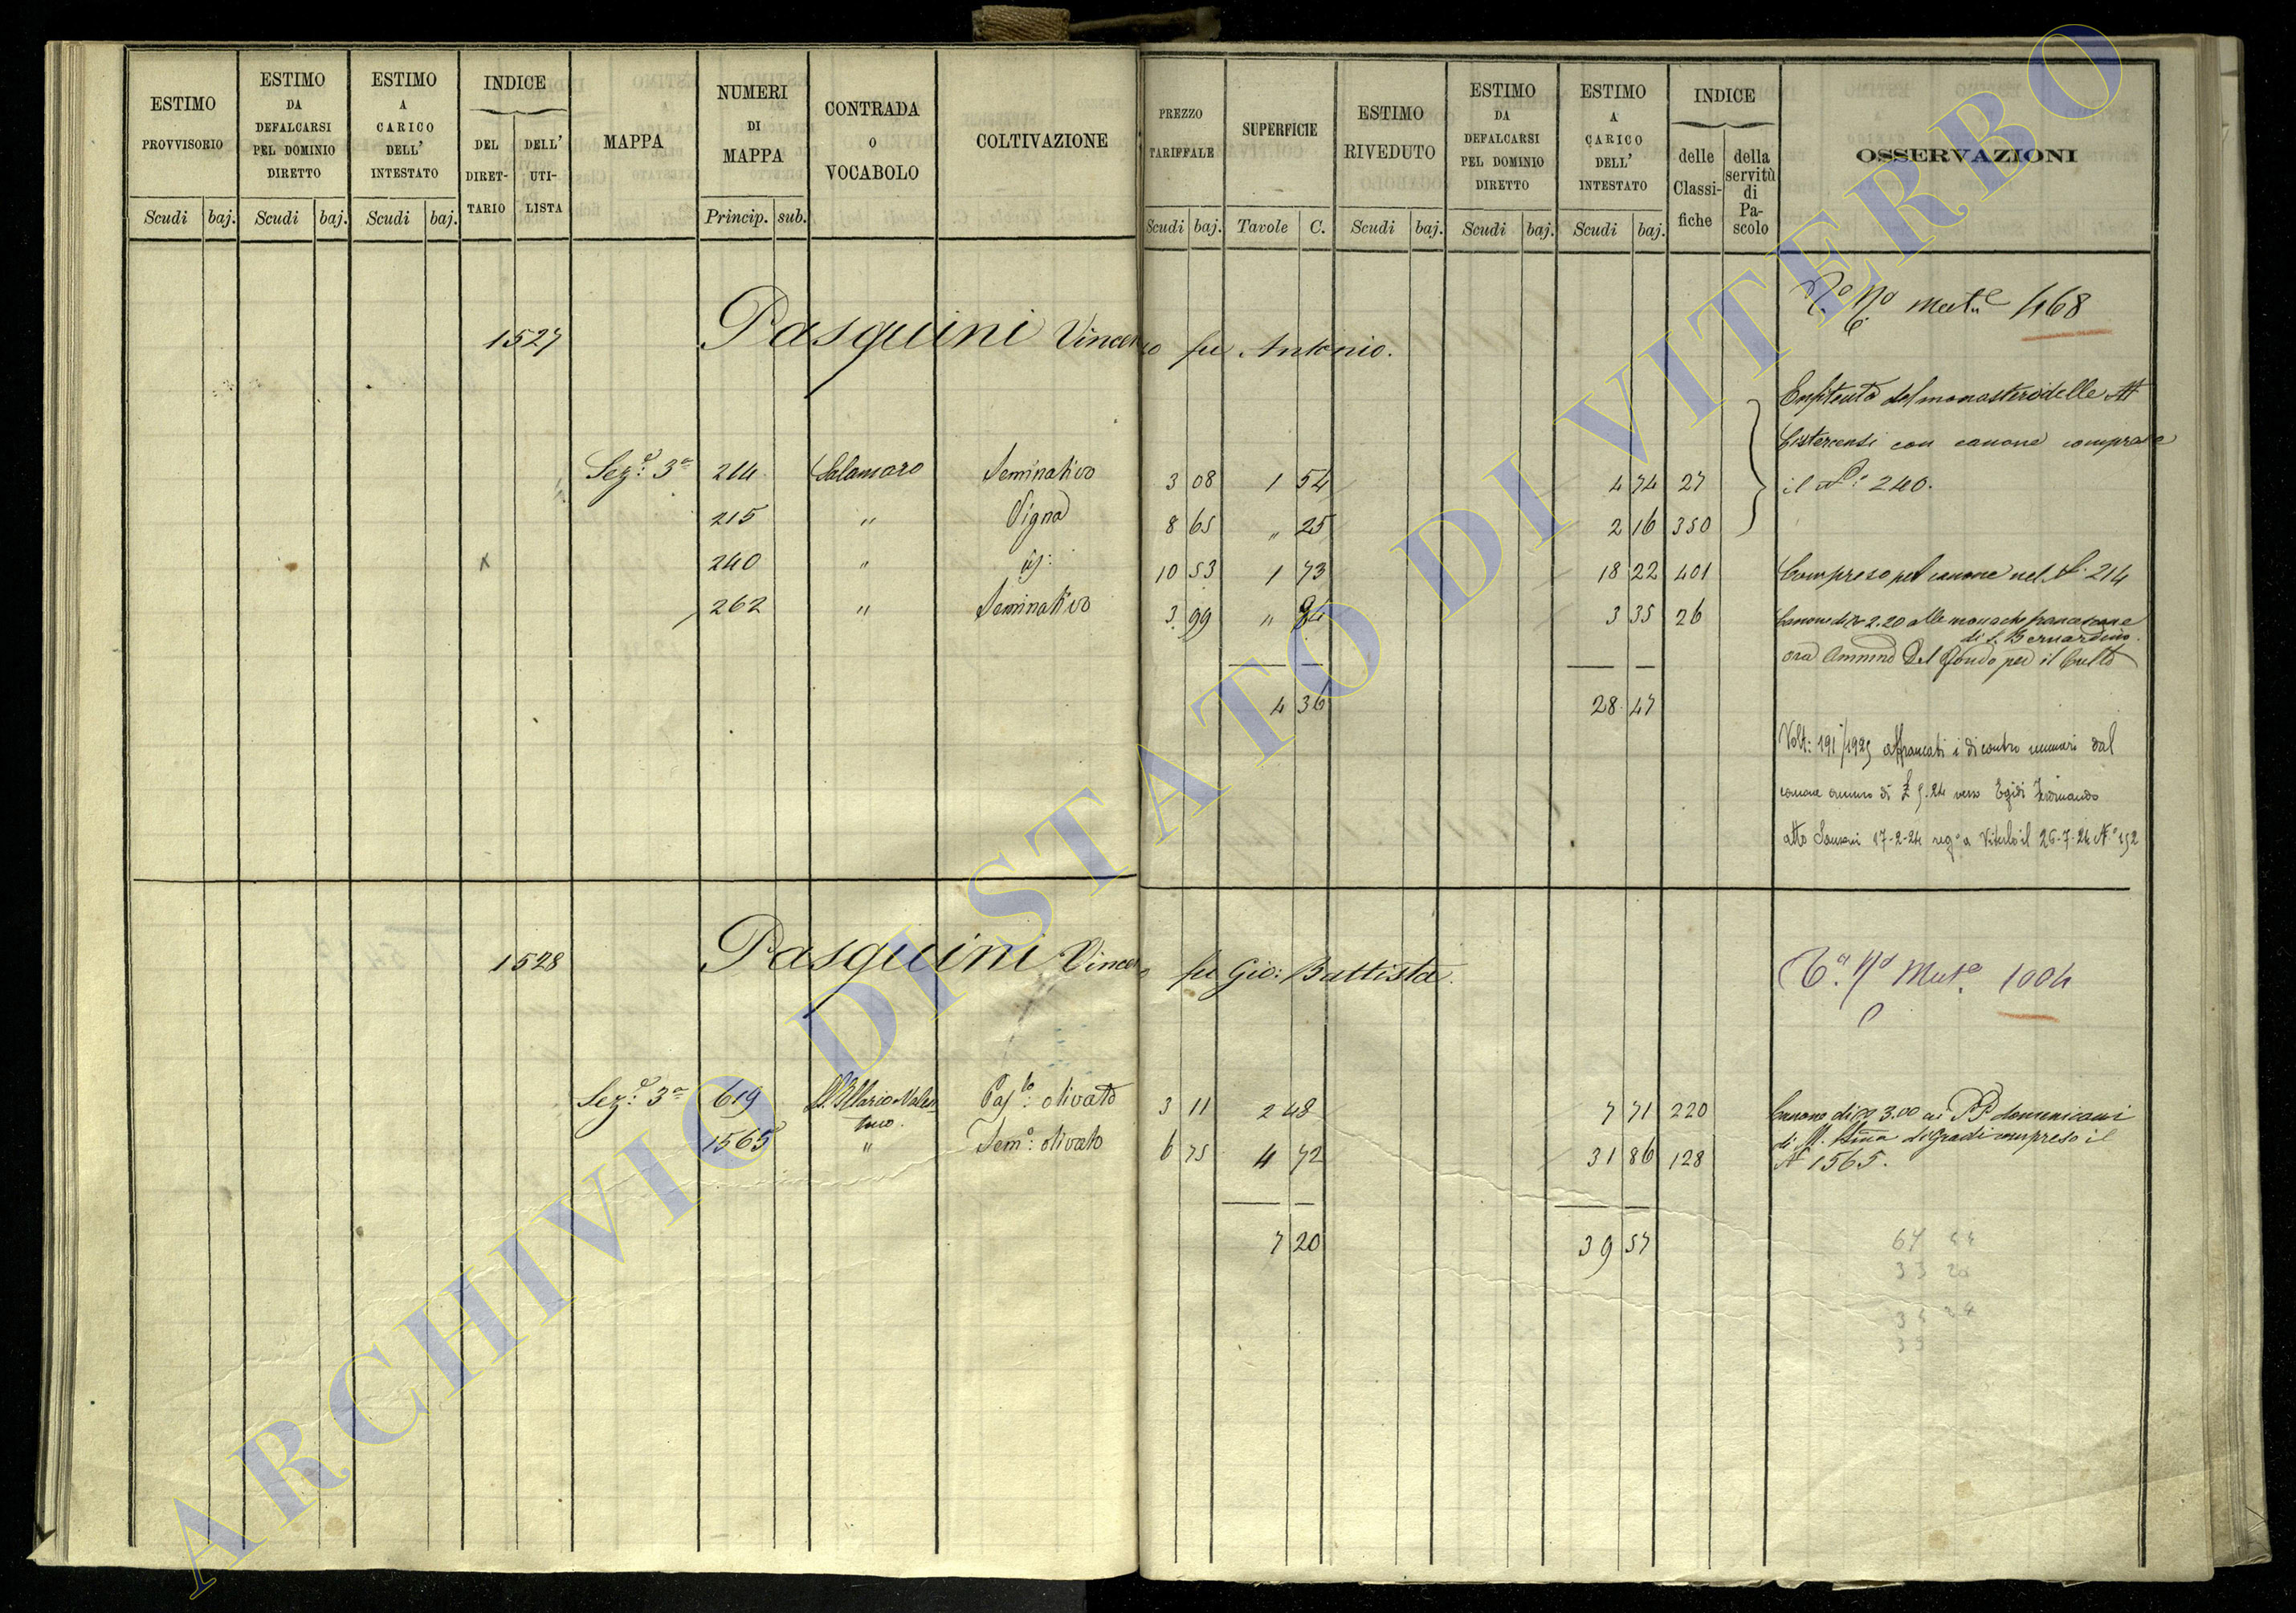 ESTIMO PROVVISORIO
Scudi baj.
ESTIMO DA DEFALCARSI PEL DOMINIO DIRETTO
Scudi baj.
ESTIMO A CARICO DELL' INTESTATO
Scudi baj.
INDICE
DEL DIRET-TARIO
DELL' UTI-LISTA
MAPPA
NUMERI DI MAPPA
Princip. sub.
CONTRADA O VOCABOLO
COLTIVAZIONE
PREZZO TARIFFALE
Scudi baj.
SUPERFICIE
Tavole C.
ESTIMO RIVEDUTO
Scudi baj.
ESTIMO DA DEFALCARSI PEL DOMINIO DIRETTO
Scudi baj.
ESTIMO A CARICO DELL' INTESTATO
Scudi baj.
INDICE
delle Classi-fiche
della servitù di Pa-scolo
OSSERVAZIONI
468
1527 Pasquini Vincenzo fu Antonio.
Enfiteuta del monastero delle
Cistercensi con canone comprare
il N.° 240.
Sez.e 3a 214 Salamaro Seminativo 3 08 1 54 4 74 27
215 " Vigna 8 65 " 25 2 16 350
x 240 " id: 10 53 1 73 18 22 401 Compreso pel canone nel N. 214
262 " Seminativo 3 99 " 84 3 35 26 Canone di 2.20 alle monache francescane
di S. Bernardino.
ora Ammne Del Fondo per il Culto
4 36 28 47
Volt: 191/1925 affrancati i dicontro numeri dal
canone annuo di £ 5.24 verso Egidi Ferdinando
atto 17-2-24 rego a Viterbo il 26-7-24 N.° 152
1528 Pasquini Vincenzo fu Gio: Battista.
1004
Sez.e 3a 619 S. Maria Valen-tino. Paslo: olivato 3 11 2 48 7 71 220 Canone di 3.00 ai PP domenicani
di Gradi compreso il
1565 " Semo: olivato 6 75 4 72 31 86 128 N 1565.
7 20 39 57
ARCHIVIO DI STATO DI VITERBO